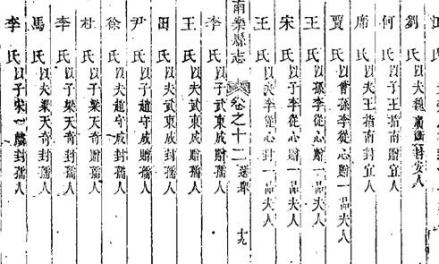 劉氏以夫
何氏以子王指南贈宜人
席氏以夫王指南封宜人
賈氏以曾孫李從心贈一品夫人
王氏以孫李從心贈一品夫人
宋氏以子李從心贈一品夫人
王氏以夫李從心封一品夫人
南樂縣志 卷之十二 十九
李氏以子武東成贈孺人
王氏以夫武東成封孺人
田氏以子趙守成贈孺人
尹氏以子趙守成贈孺人
徐氏以夫趙守成封孺人
杜氏以子梁天奇贈孺人
李氏以子梁天奇贈孺人
馬氏以夫梁天奇封孺人
李氏以子宋一 封孺人